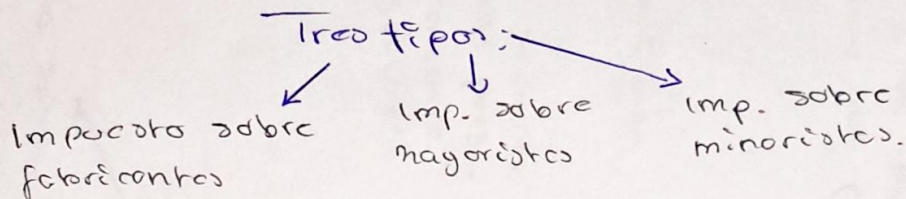 Tres tipos:
Impuesto sobre
fabricantes
Imp. sobre
mayoristas
Imp. sobre
minoristas.